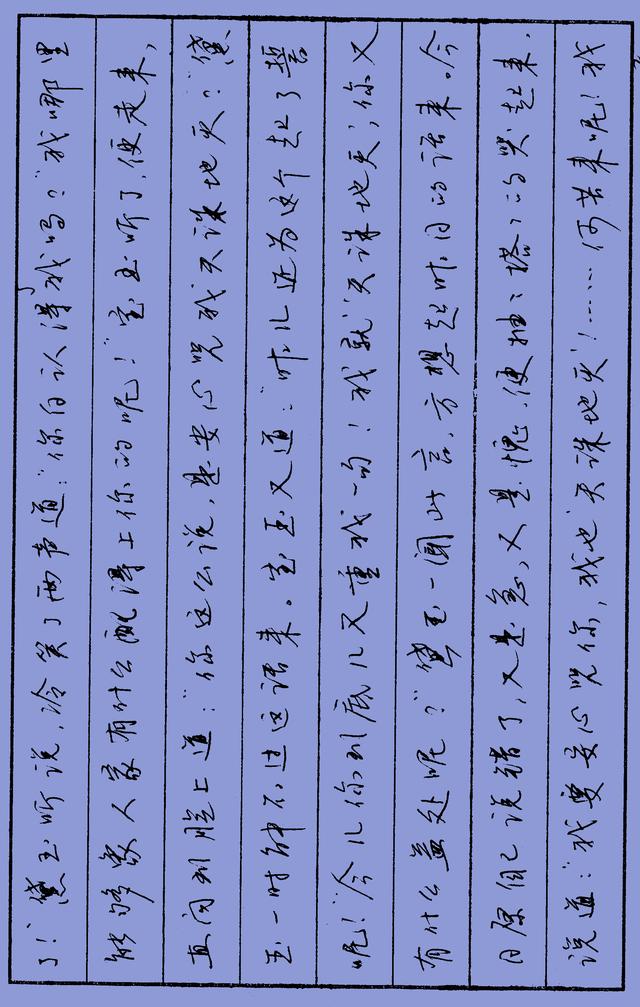 了!”黛玉听说,冷笑了两声道:“你白认得我吗?我哪里
能够象人家有什么配得上你的呢!”宝玉听了,便走来,
直问到脸上道:“你这么说,是安心咒我天诛地灭?”黛
玉一时解不过这话来。宝玉又道:“昨儿还为这个起了誓
呢!今儿你到底儿又重我一句!我就‘天诛地灭’,你又
有什么益处呢?”黛玉一闻此言,方想起昨日的话来。今
日原自己说错了,又是急,又是愧,便抽抽搭搭的哭起来,
说道:“我要安心咒你,我也‘天诛地灭’!……何苦来呢!我